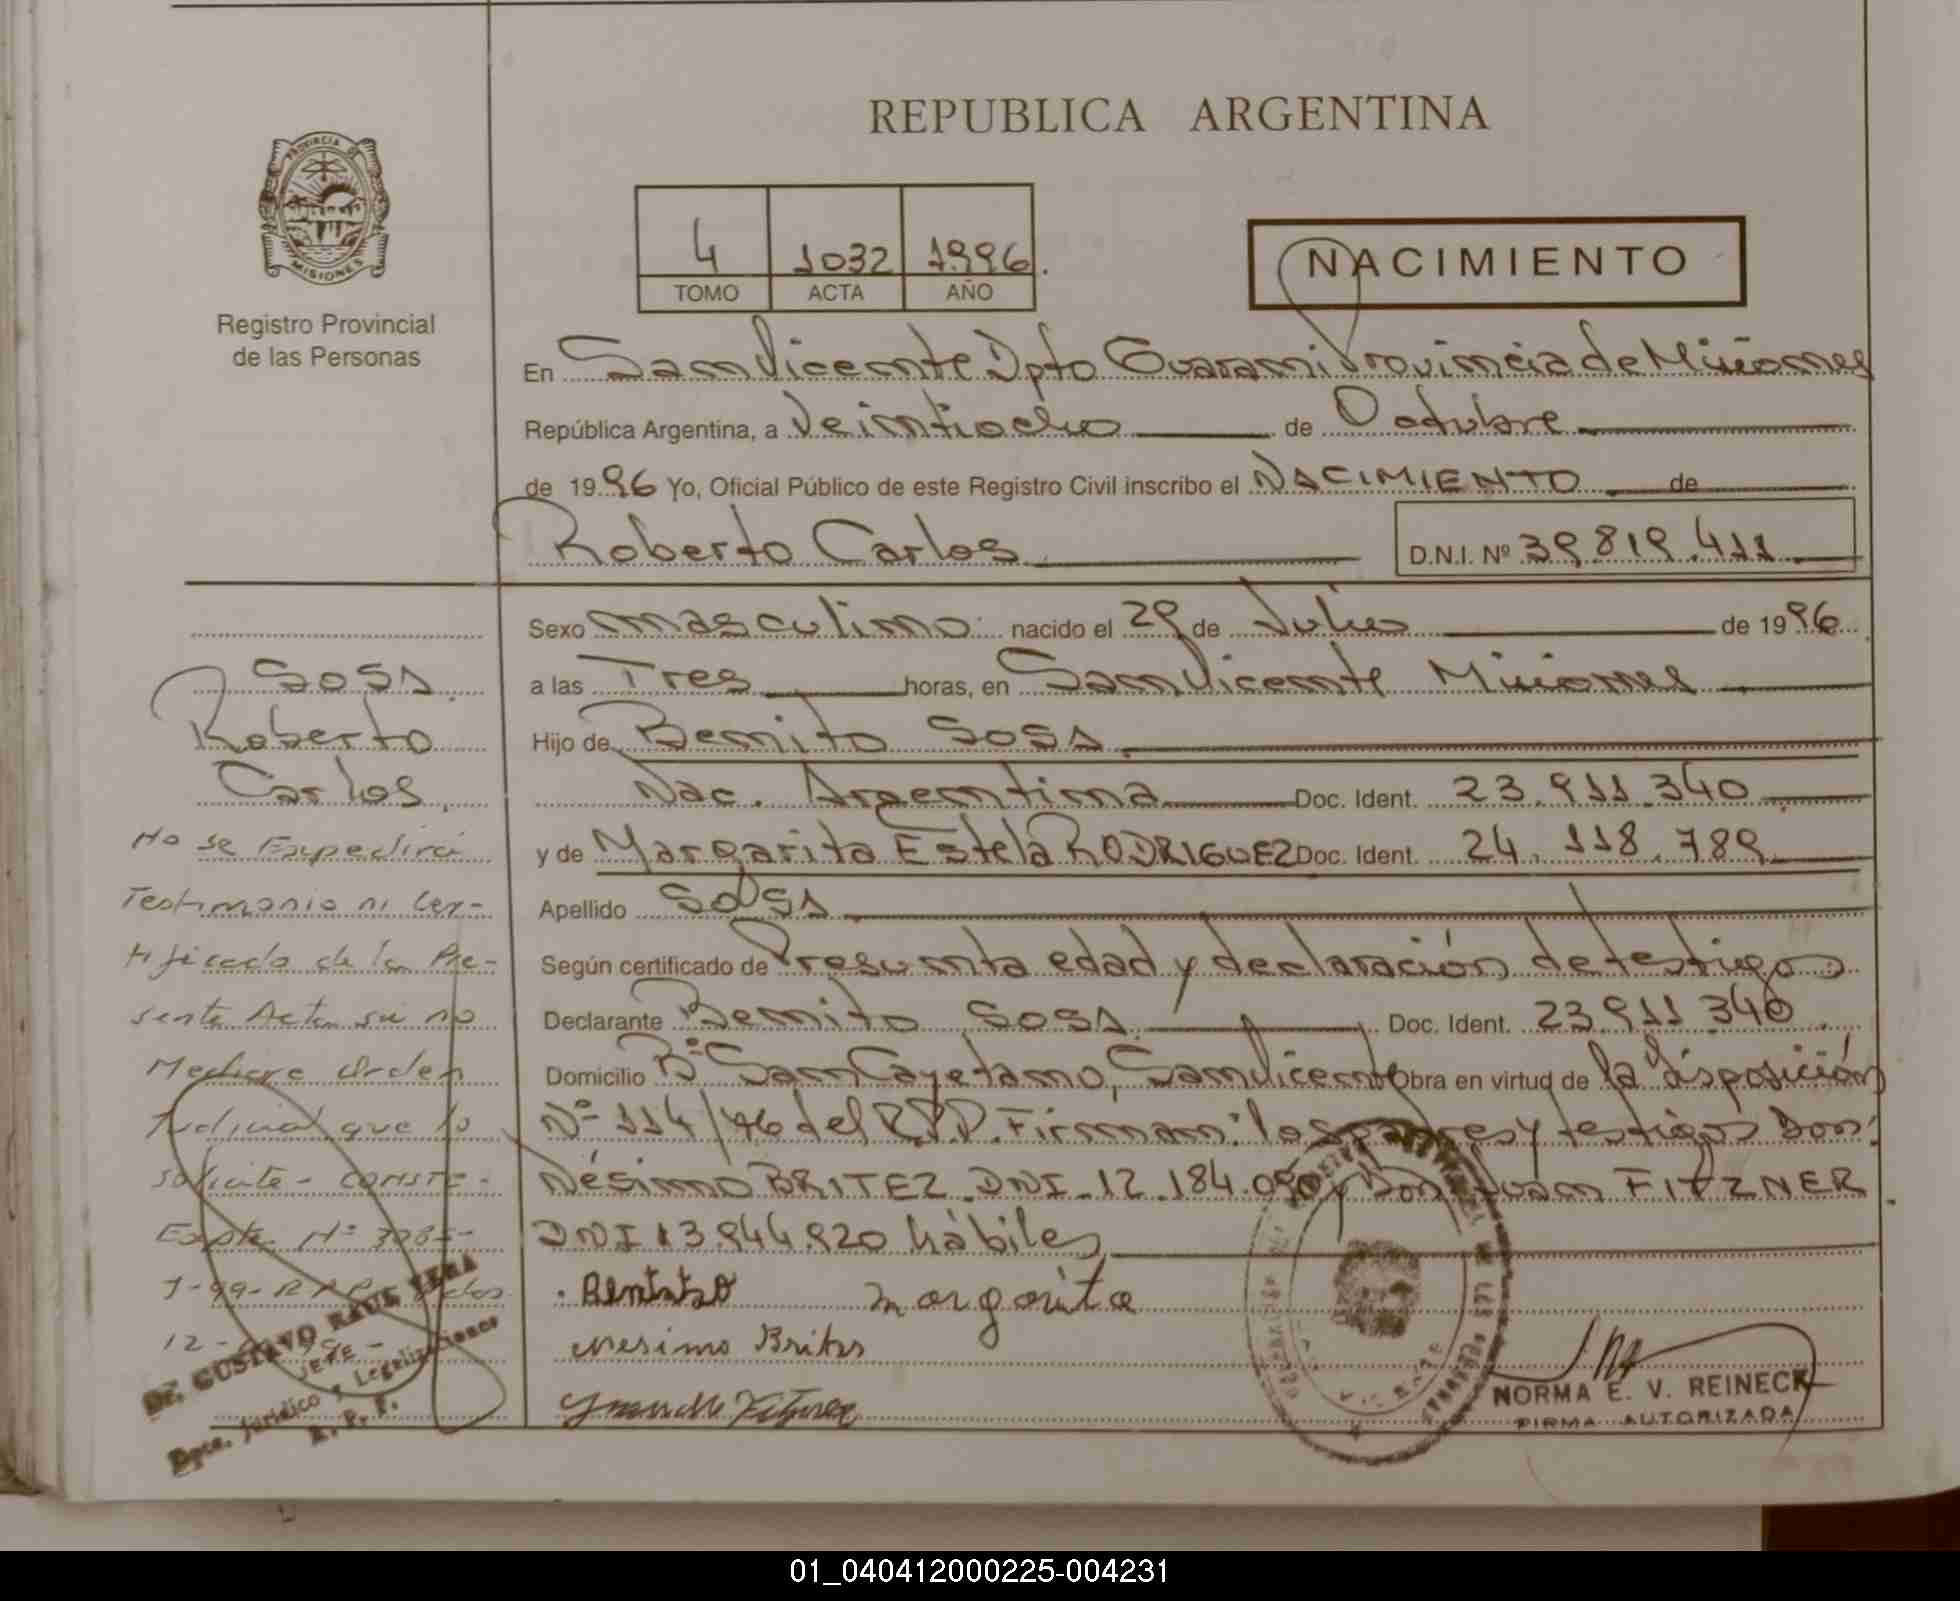 REPUBLICA ARGENTINA
PROVINCIA DE
MISIONES
Registro Provincial
de las Personas
4 1032 1996.
TOMO ACTA AÑO
NACIMIENTO
En San Vicente Dpto Guarani Provincia de Misiones
República Argentina, a Veintiocho de Octubre
de 1996 Yo, Oficial Público de este Registro Civil inscribo el NACIMIENTO de
Roberto Carlos D.N.I. Nº 39.819.411
Sexo masculino nacido el 29 de Julio de 1996
a las Tres horas, en San Vicente Misiones
Hijo de Benito SOSA
Nac. Argentina Doc. Ident. 23.911.340
y de Margarita Estela RODRIGUEZ Doc. Ident. 24.118.789
Apellido SOSA
Según certificado de Presunta edad y declaración de testigos
Declarante Benito SOSA Doc. Ident. 23.911.340
Domicilio Bº San Cayetano, San Vicente Obra en virtud de la disposición
Nº 114/96 del R.P.P. Firman: los padres y testigos Don:
Nésimo BRITEZ. DNI. 12.184.090 y Don Juan FITZNER.
DNI 13.944.920 hábiles
Margarita
Nesimo Brites
NORMA E. V. REINECK
FIRMA AUTORIZADA
SOSA
Roberto
Carlos
No se Expedirá
Testimonio ni Cer-
tificado de la Pre-
sente Acta si no
Mediare Orden
Judicial que lo
solicite - CONSTE -
Expte Nº 3085-
J-99-R.P.P.
12-
Dr. GUSTAVO RAUL VERA
JEFE
Dpto. Jurídico y Legalizaciones
R. P. P.
01_040412000225-004231